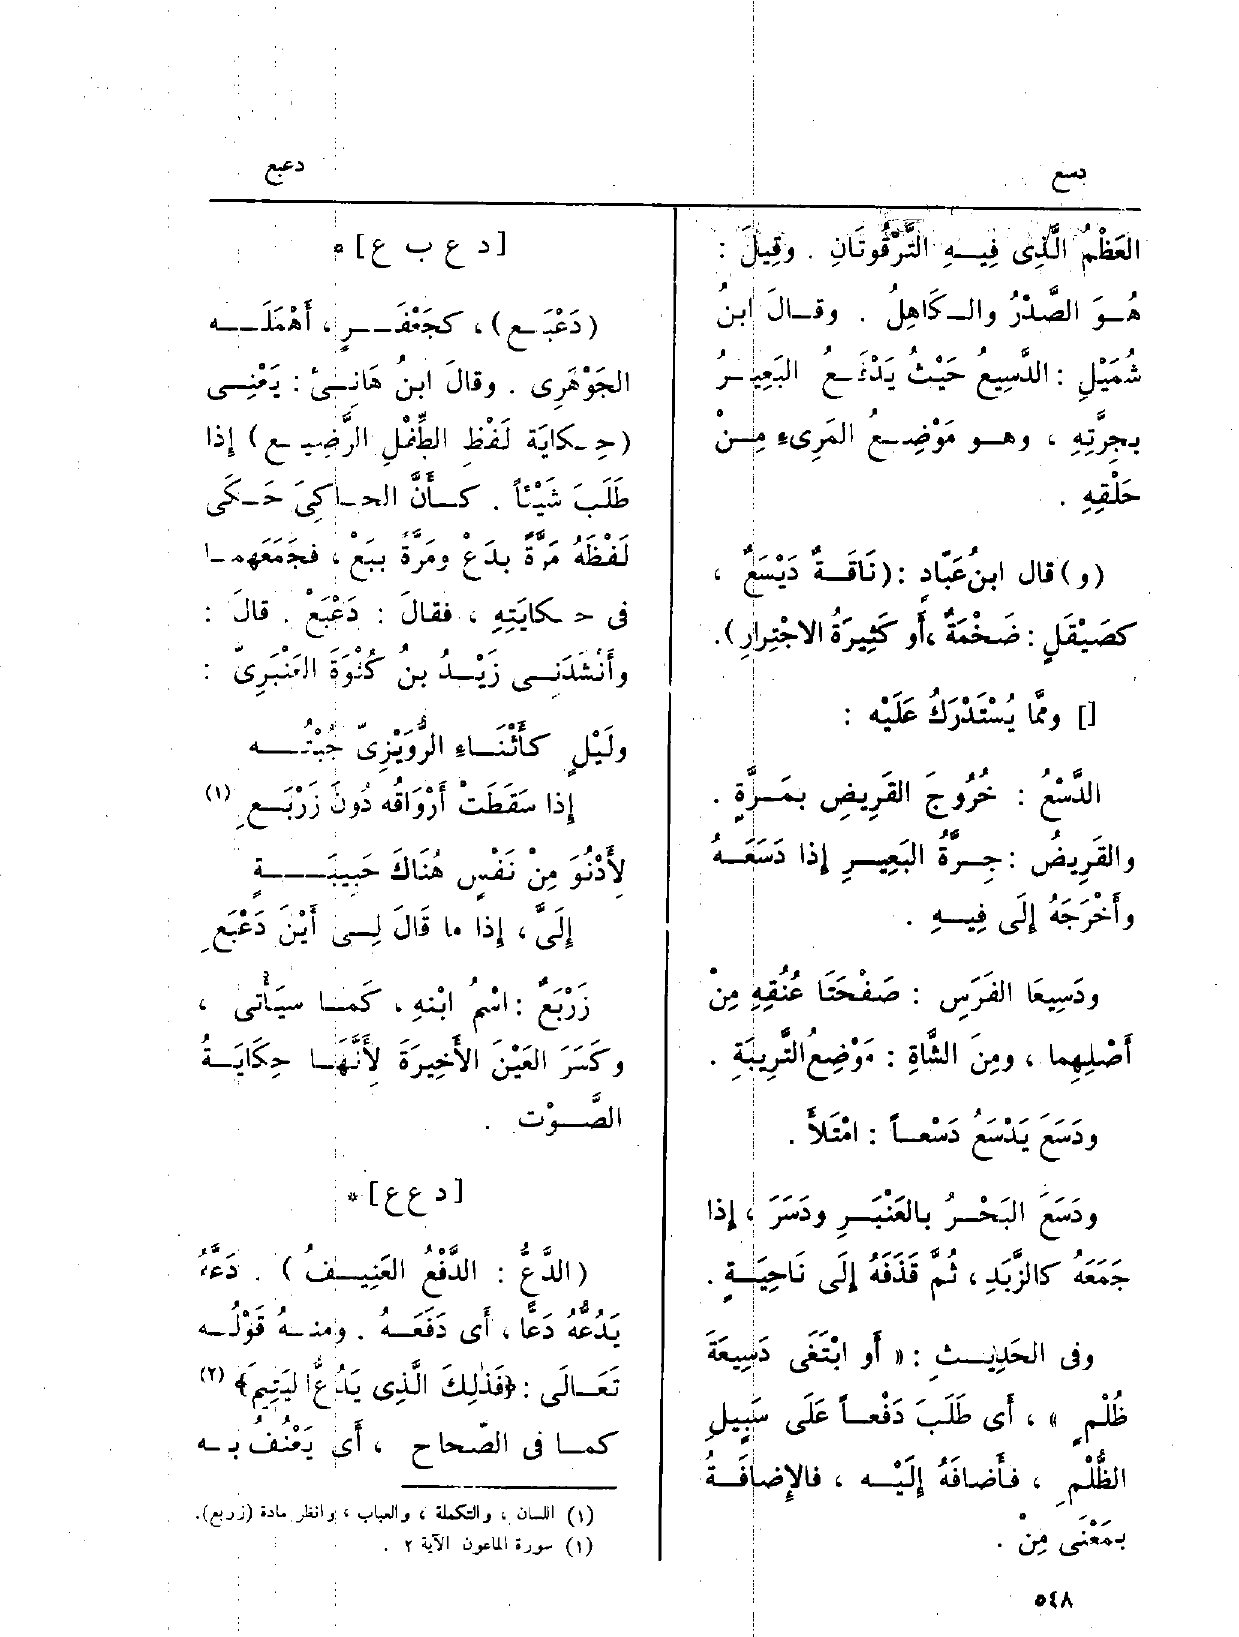 دسع
دعبع
العَظْمُ الَّذِى فِيهِ التَّرْقُوَتَانِ . وقِيلَ :
هُوَ الصَّدْرُ والكَاهِلُ . وقالَ ابنُ
شُمَيْلٍ : الدَّسِيعُ حَيْثُ يَدْفَعُ البَعِيرُ
بِجِرَّتِهِ ، وهو مَوْضِعُ المَرِىءِ مِنْ
حَلْقِهِ .
(و) قال ابنُ عَبّادٍ : (نَاقَةٌ دَيْسَعٌ ،
كصَيْقَلٍ : ضَخْمَةٌ ، أَو كَثِيرَةُ الاجْتِرارِ).
[] وممَّا يُسْتَدْرَكُ عَلَيْه :
الدَّسْعُ : خُرُوجَ القَرِيضِ بمَرَّةٍ .
والقَرِيضُ : جِرَّةُ البَعِيرِ إِذا دَسَعَهُ
وأَخْرَجَهُ إِلَى فِيهِ .
ودَسِيعَا الفَرَسِ : صَفْحَتَا عُنُقِهِ مِنْ
أَصْلِهِما ، ومِنَ الشَّاةِ : مَوْضِعُ التَّرِيبَةِ .
ودَسَعَ يَدْسَعُ دَسْعاً : امْتَلأَ .
ودَسَعَ البَحْرُ بالعَنْبَرِ ودَسَرَ ، إِذا
جَمَعَهُ كالزَّبَدِ ، ثُمَّ قَذَفَهُ إِلَى نَاحِيَةٍ .
وفى الحَدِيثِ : « أَو ابْتَغَى دَسِيعَةَ
ظُلْمٍ » ، أَى طَلَبَ دَفْعاً عَلَى سَبِيلِ
الظُّلْمِ ، فأَضافَهُ إِلَيْه ، فالإِضافَةُ
بمَعْنَى مِنْ .
[د ع ب ع] *
(دَعْبَع) ، كجَعْفَرٍ ، أَهْمَلَه
الجَوْهَرِى . وقالَ ابنُ هَانِىْ : يَعْنِى
(حِكايَة لَفْظِ الطِّفْلِ الرَّضِيعِ) إِذا
طَلَبَ شَيْئاً . كأَنَّ الحاكِىَ حَكَى
لَفْظَهُ مَرَّةً بدَعْ ومَرَّةً ببَعْ ، فجَمَعَهما
فى حكايَتِهِ ، فقالَ : دَعْبَعْ . قالَ :
وأَنْشَدَنِى زَيْدُ بنُ كُثْوَةَ العَنْبَرِىّ :
ولَيْلٍ كأَثْنَاءِ الرُّوَيْزِىّ جُبْتُه
إِذا سَقَطَتْ أَرْوَاقُه دُونَ زَرْبَعِ (١)
لِأَدْنُوَ مِنْ نَفْسٍ هُنَاكَ حَبِيبَةٍ
إِلَىَّ ، إِذا ما قَالَ لِى أَيْنَ دَعْبَعِ
زَرْبَعٌ : اسْمُ ابْنِهِ ، كَما سيَأْتى ،
وكَسَرَ العَيْنَ الأَخِيرَةَ لأَنَّهَا حِكايَةُ
الصَّوْت .
[د ع ع] *
(الدَّعُّ : الدَّفْعُ العَنِيفُ) . دَعَّهُ
يَدُعُّهُ دَعًّا ، أَى دَفَعَهُ . ومنهُ قَوْلُه
تَعَالَى : ﴿فَذٰلِكَ الَّذِى يَدُعُّ اليَتِيمَ﴾ (٢)
كما فى الصّحاحِ ، أَىْ يَعْنُفُ به
(١) اللسان ، والتكملة ، والعباب ، وانظر مادة (زربع).
(١) سورة الماعون الآية ٢ .
٥٤٨